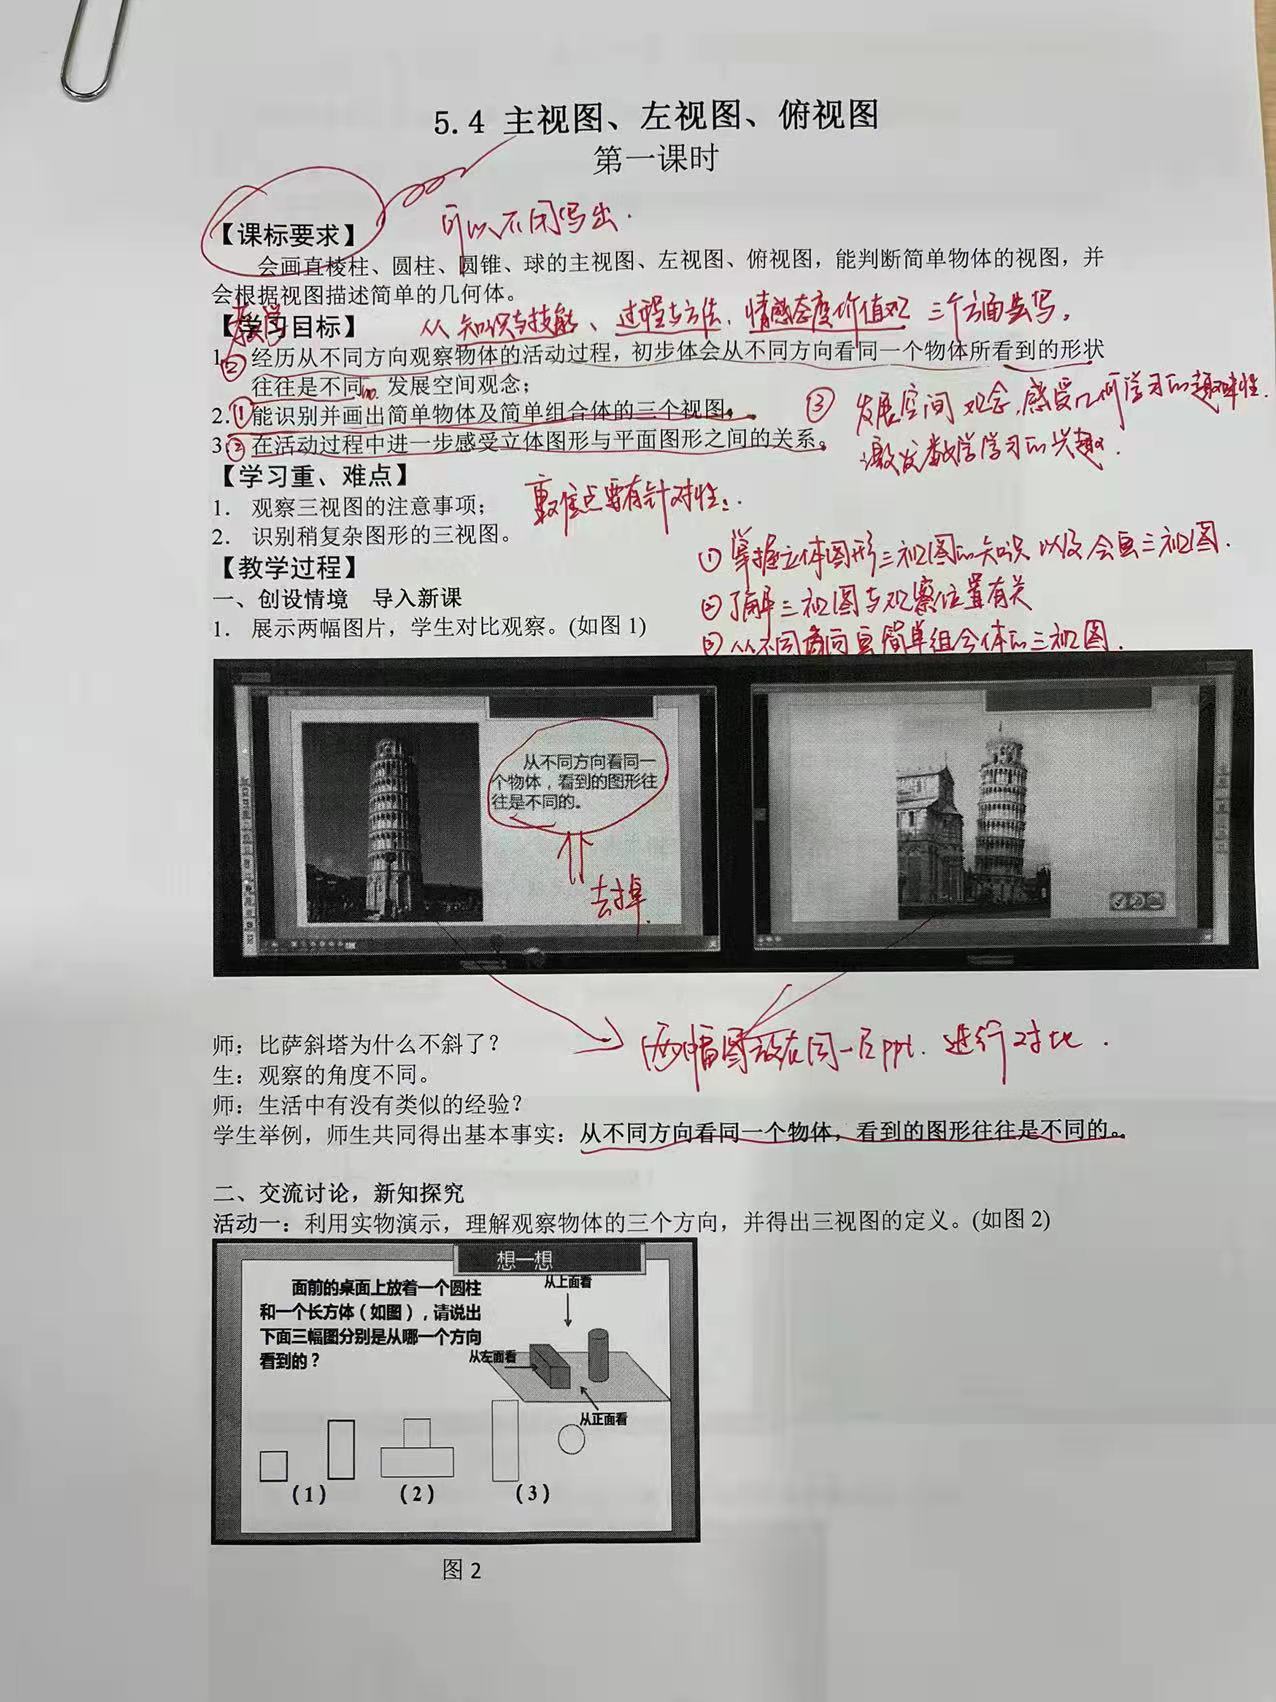 5.4 主视图、左视图、俯视图
第一课时
可以不用写出.
【课标要求】
会画直棱柱、圆柱、圆锥、球的主视图、左视图、俯视图，能判断简单物体的视图，并
会根据视图描述简单的几何体。
教学
【学习目标】
从知识与技能、过程与方法、情感态度价值观 三个方面去写。
1. ② 经历从不同方向观察物体的活动过程，初步体会从不同方向看同一个物体所看到的形状
往往是不同 发展空间观念；
2. ① 能识别并画出简单物体及简单组合体的三个视图。
3. ② 在活动过程中进一步感受立体图形与平面图形之间的关系。
③ 发展空间观念,感受几何学习的趣味性.
激发数学学习的兴趣.
【学习重、难点】
1. 观察三视图的注意事项；
2. 识别稍复杂图形的三视图。
重难点要有针对性:
① 掌握立体图形三视图的知识 以及会画三视图.
② 了解三视图与观察位置有关
③ 从不同方向画简单组合体的三视图.
【教学过程】
一、创设情境 导入新课
1. 展示两幅图片，学生对比观察。(如图 1)
从不同方向看同一
个物体，看到的图形往
往是不同的。
去掉
两幅图放在同一片ppt. 进行对比.
师：比萨斜塔为什么不斜了？
生：观察的角度不同。
师：生活中有没有类似的经验？
学生举例，师生共同得出基本事实：从不同方向看同一个物体，看到的图形往往是不同的。
二、交流讨论，新知探究
活动一：利用实物演示，理解观察物体的三个方向，并得出三视图的定义。(如图 2)
想一想
面前的桌面上放着一个圆柱
和一个长方体（如图），请说出
下面三幅图分别是从哪一个方向
看到的？
从上面看
从左面看
从正面看
（1） （2） （3）
图 2